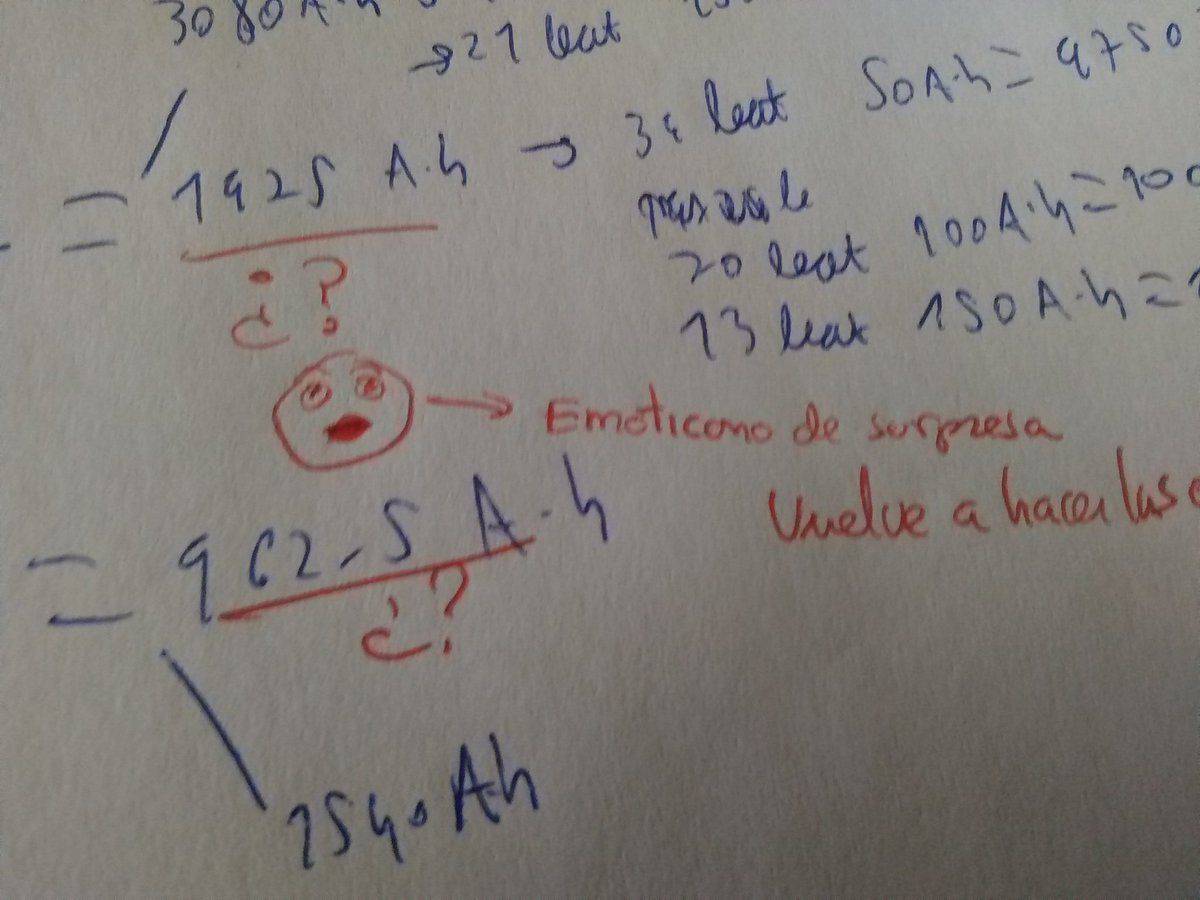 3080 A·h
→ 21 leat
= 1925 A·h → 39 leat 50A·h = 9750
20 leat 100A·h = 100
13 leat 150A·h =
¿?
→ Emoticono de surpresa
Vuelve a hacer las
= 962,5 A·h
¿?
1540 Ah